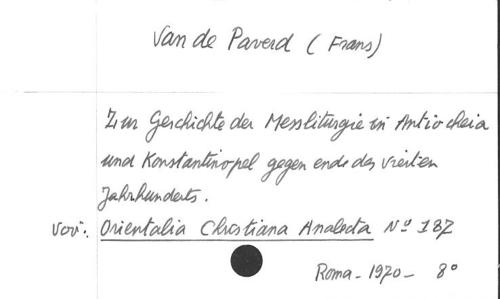 Van de Paverd (Frans)
Zur Geschichte der Messliturgie in Antiocheia
und Konstantinopel gegen ende des vierten
Jahrhunderts.
voir: Orientalia Christiana Analecta Nº 187
Roma - 1970 - 8º